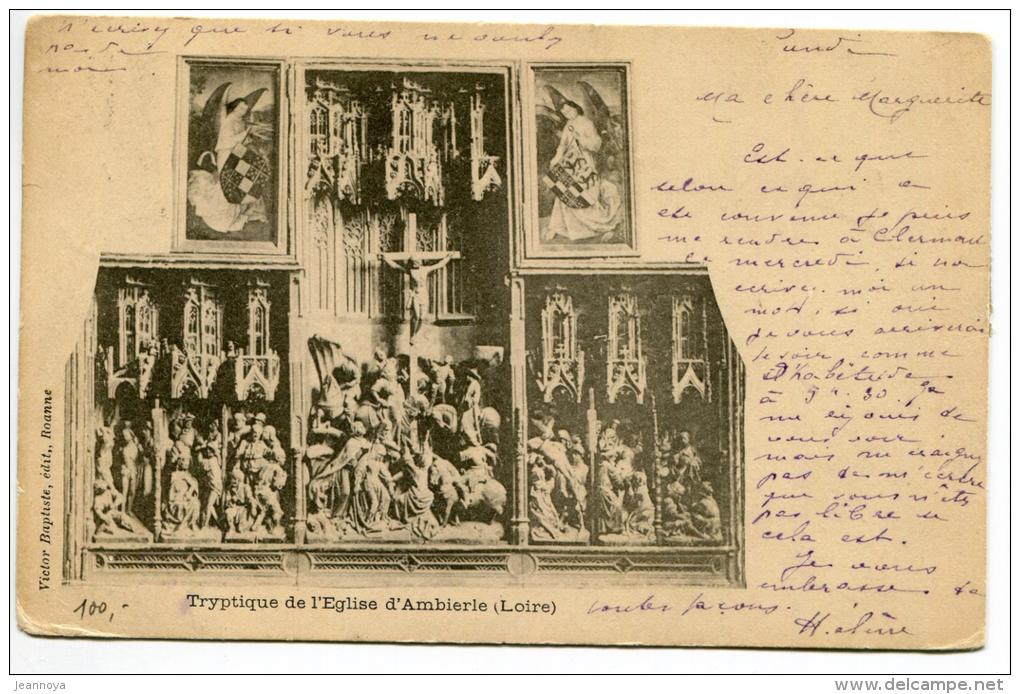 N'écrivez que si vous ne voulez
pas de
moi.
Lundi
Ma chère Marguerite
Est-ce que
selon ce qui a
été convenu je puis
me rendre à Clermont
ce mercredi, si non
écrivez-moi un
mot, si oui
je vous arriverai
le soir comme
d'habitude
à 5h.30. Ça
me réjouis de
vous voir
mais ne craignez
pas de m'écrire
que vous n'êtes
pas libre si
cela est.
Je vous
embrasse de
toutes façons.
Hélène
Victor Baptiste, édit., Roanne
100,-
Tryptique de l'Eglise d'Ambierle (Loire)
jeannoya
www.delcampe.net